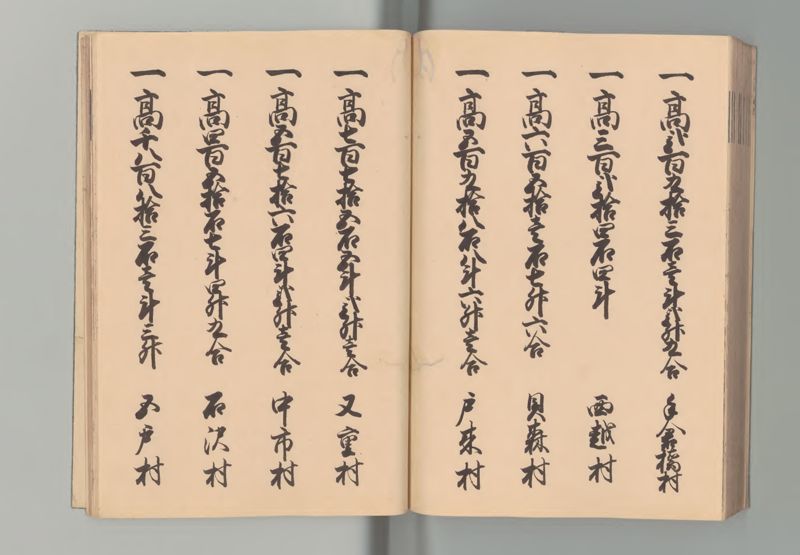 一 高弐百九拾三石壱斗弐升九合 手倉橋村
一 高三百弐拾四石四斗 西越村
一 高六百五拾壱石七升六合 貝森村
一 高五百九拾八石八斗六升壱合 戸来村
一 高七百七拾五石五斗弐升壱合 又重村
一 高五百七拾六石四斗弐升壱合 中市村
一 高四百五拾石七斗四升九合 石沢村
一 高千八百八拾三石壱斗三升 五戸村